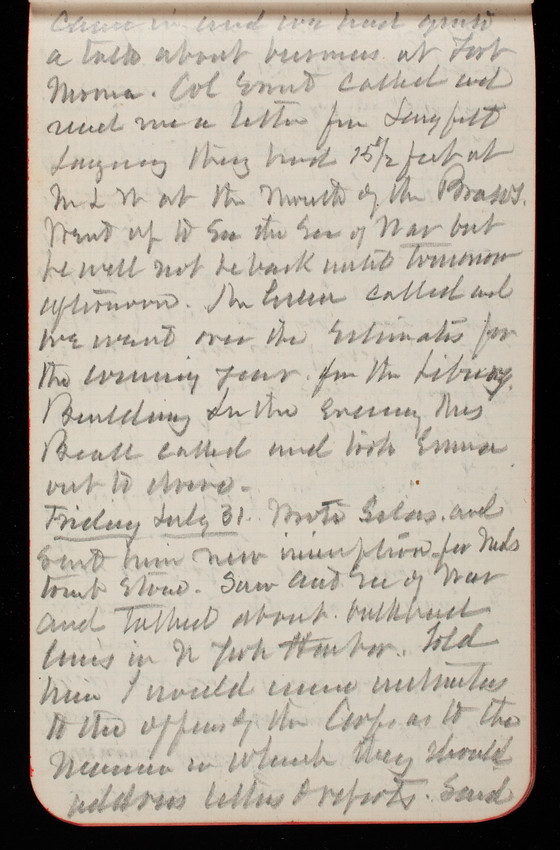 Came in and we had quite
a talk about business at Fort
Monroe. Col Ernst called and
read me a letter from
saying they had 15 1/2 feet at
M L W at the Mouth of the Brasos.
Went up to See the Sec of War but
he will not be back until tomorrow
afternoon. Mr Green called and
we went over the Estimates for
the coming year for the Library
Building In the Evening Mrs
Beall called and took Emma
out to drive.
Friday July 31. Wrote and
Sent him new inscription for Neds
tomb Stone. Saw Act Sec of War
and talked about bulkhead
lines in N York Harbor. Told
him I would issue instructions
to the officers of the Corps as to the
Manner in which they should
address letters & reports. Said